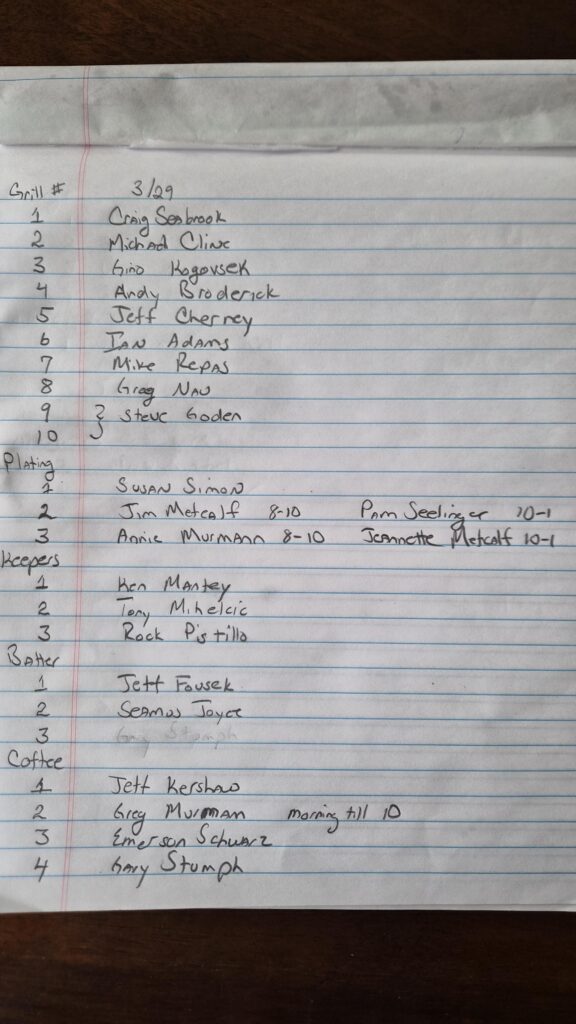 Grill # 3/29
1 Craig Seabrook
2 Michael Cline
3 Gino Kogovsek
4 Andy Broderick
5 Jeff Cherney
6 Ian Adams
7 Mike Repas
8 Greg Nau
9 } Steve Goden
10
Plating
1 Susan Simon
2 Jim Metcalf 8-10 Pam Seelinger 10-1
3 Annie Murmann 8-10 Jeannette Metcalf 10-1
Keepers
1 Ken Mantey
2 Tony Mihelcic
3 Rock Pistillo
Batter
1 Jeff Fousek
2 Seamus Joyce
3 Gary Stumph
Coffee
1 Jeff Kershaw
2 Greg Murman morning till 10
3 Emerson Schwarz
4 Gary Stumph